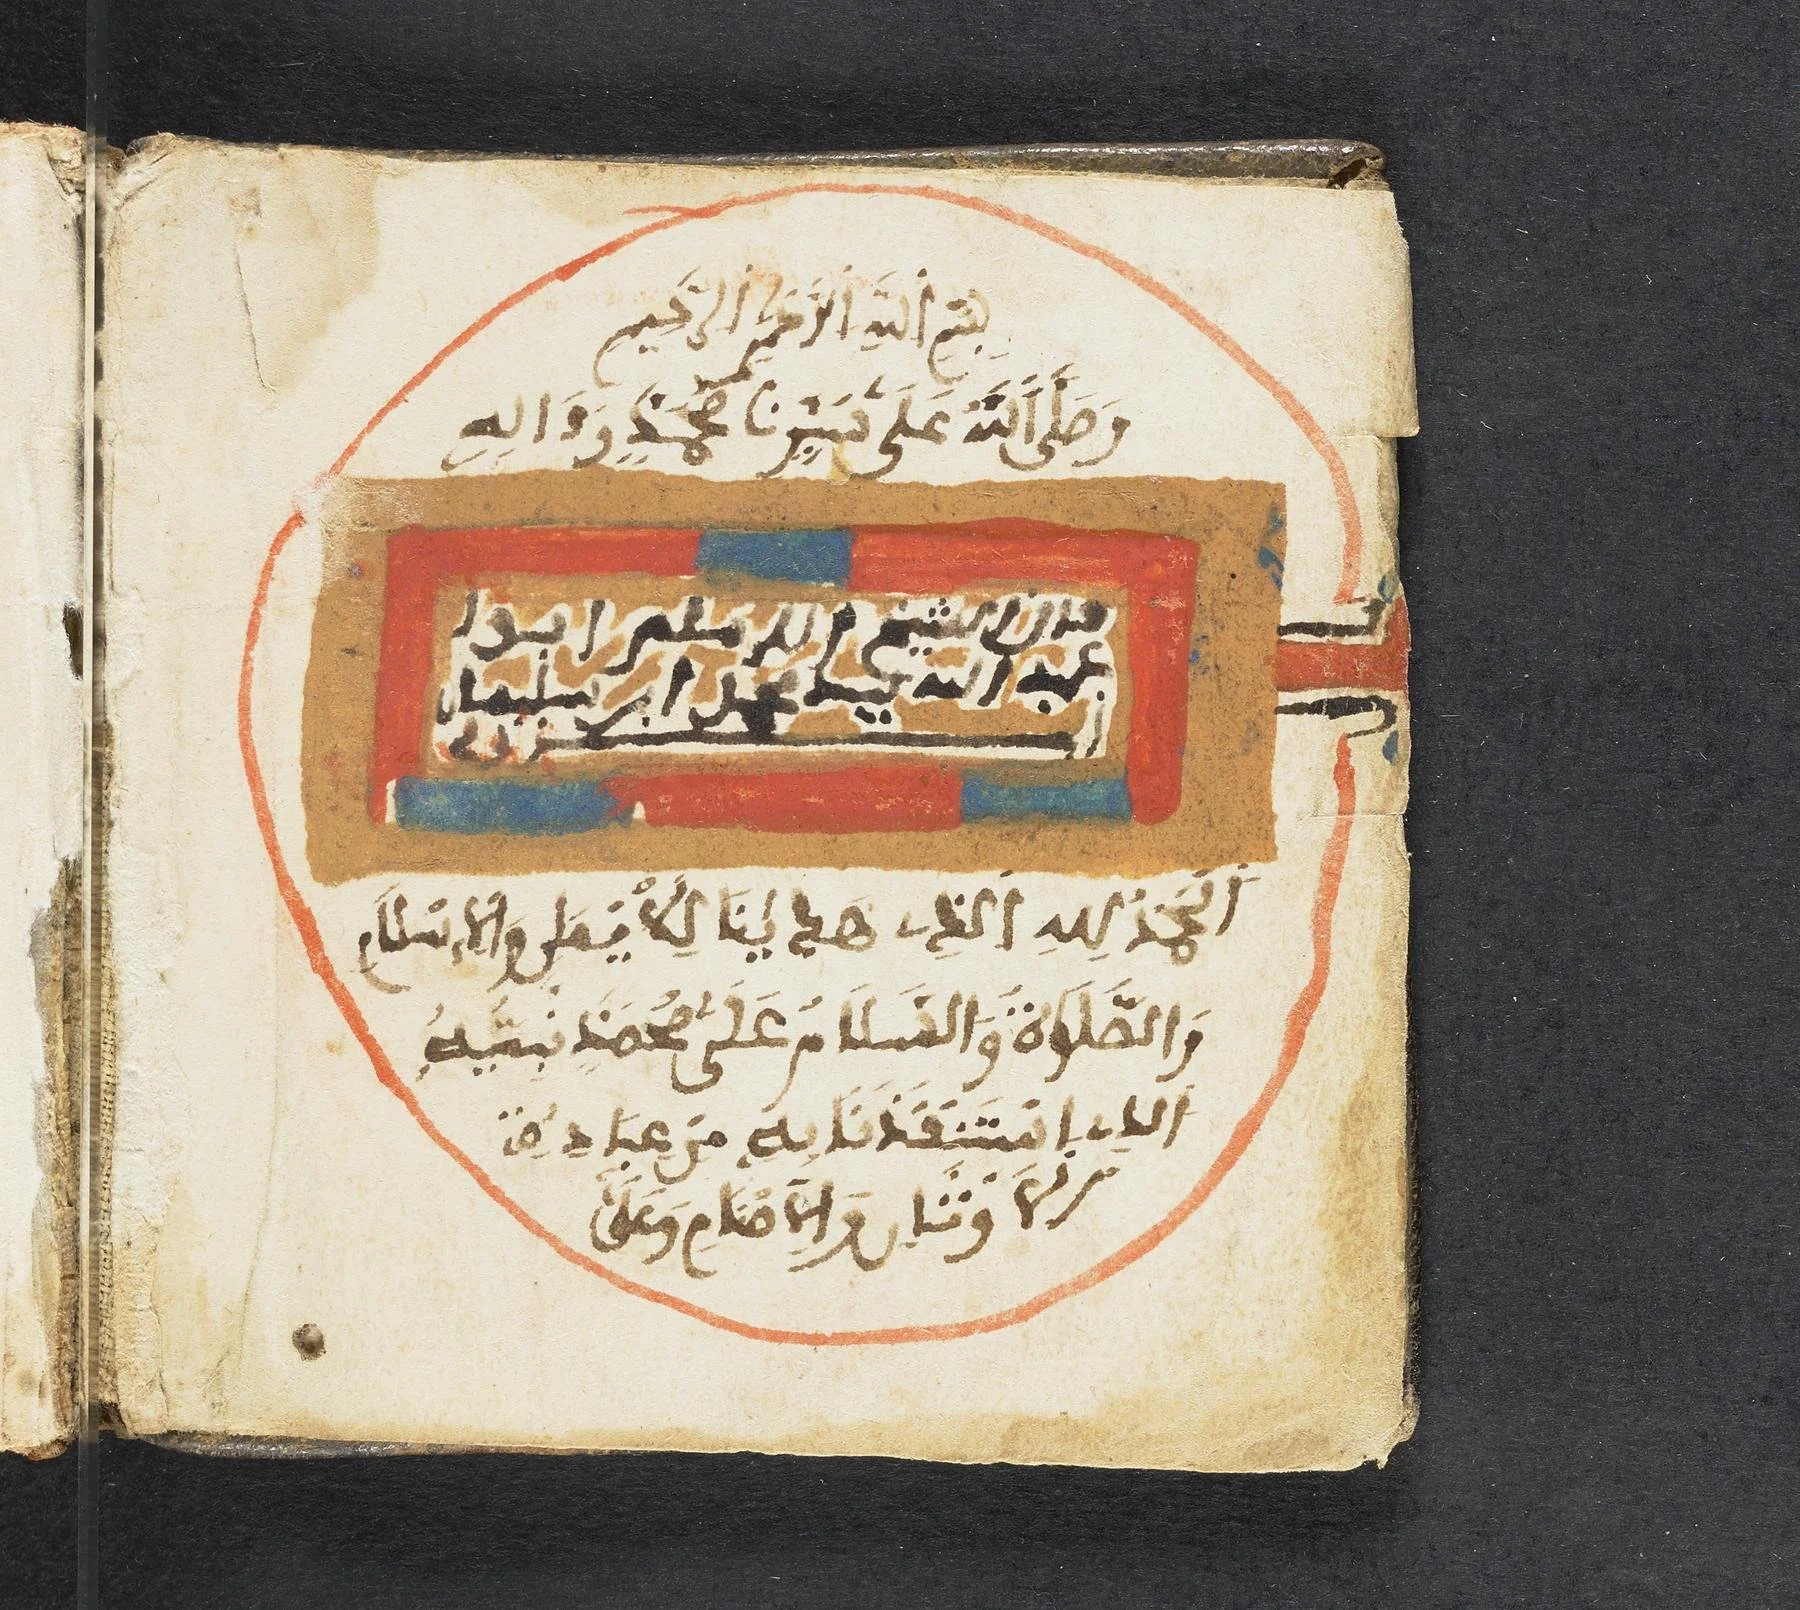 بِسْمِ اَللَّهِ اَلرَّحْمٰنِ اَلرَّحِيمِ
وَصَلَّى اَللَّهُ عَلَى سَيِّدِنَا مُحَمَّدٍ وَءَالِهِ
قال الشيخ الامام ابوا
عبد الله محمد ابن سليمان
الجزولي
اَلْحَمْدُ لِلهِ اَلذِي هَدَانَا لِلْإِيمَانِ وَالْإِسْلَامِ
وَالصَّلَوٰةُ وَالسَّلَامُ عَلَى مُحَمَّدٍ نَبِيِّهِ
اَلذِي اِسْتَنْقَذَنَا بِهِ مِنْ عِبَادَةِ
الْأَوْثَانِ وَالْأَصْنَامِ وَعَلَى